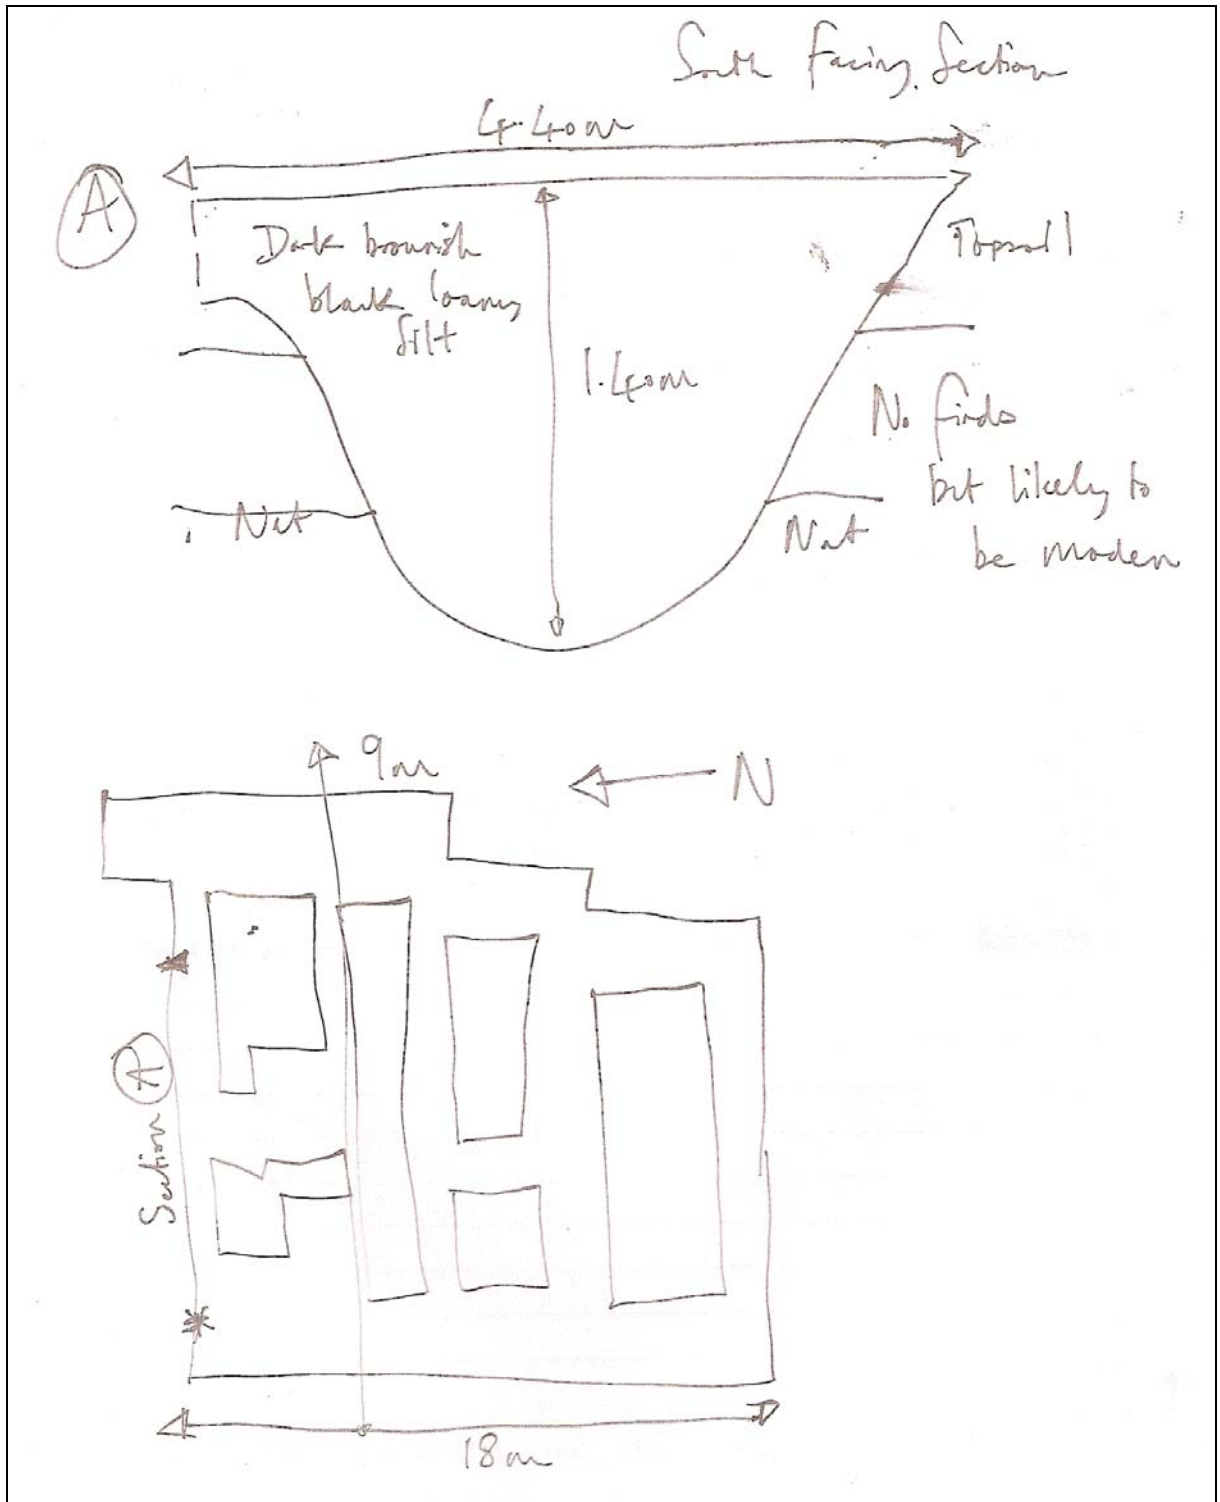 South Facing Section
4.40m
A
Dark brownish
black loamy
silt
Topsoil
1.40m
No finds
but likely to
be modern
Nat
Nat
9m
N
Section A
18m